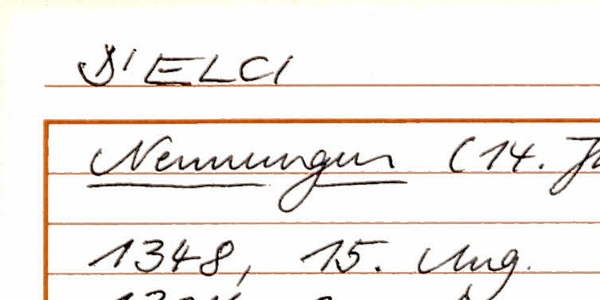 D'ELCI
Nennungen (14. J
1348, 15. Aug.